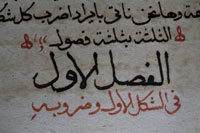 وهانحن ناتى بايراد ضرب كل
الثلثة بثلثة فصول
الفصل الاول
فى الشكل الاول وضروبه